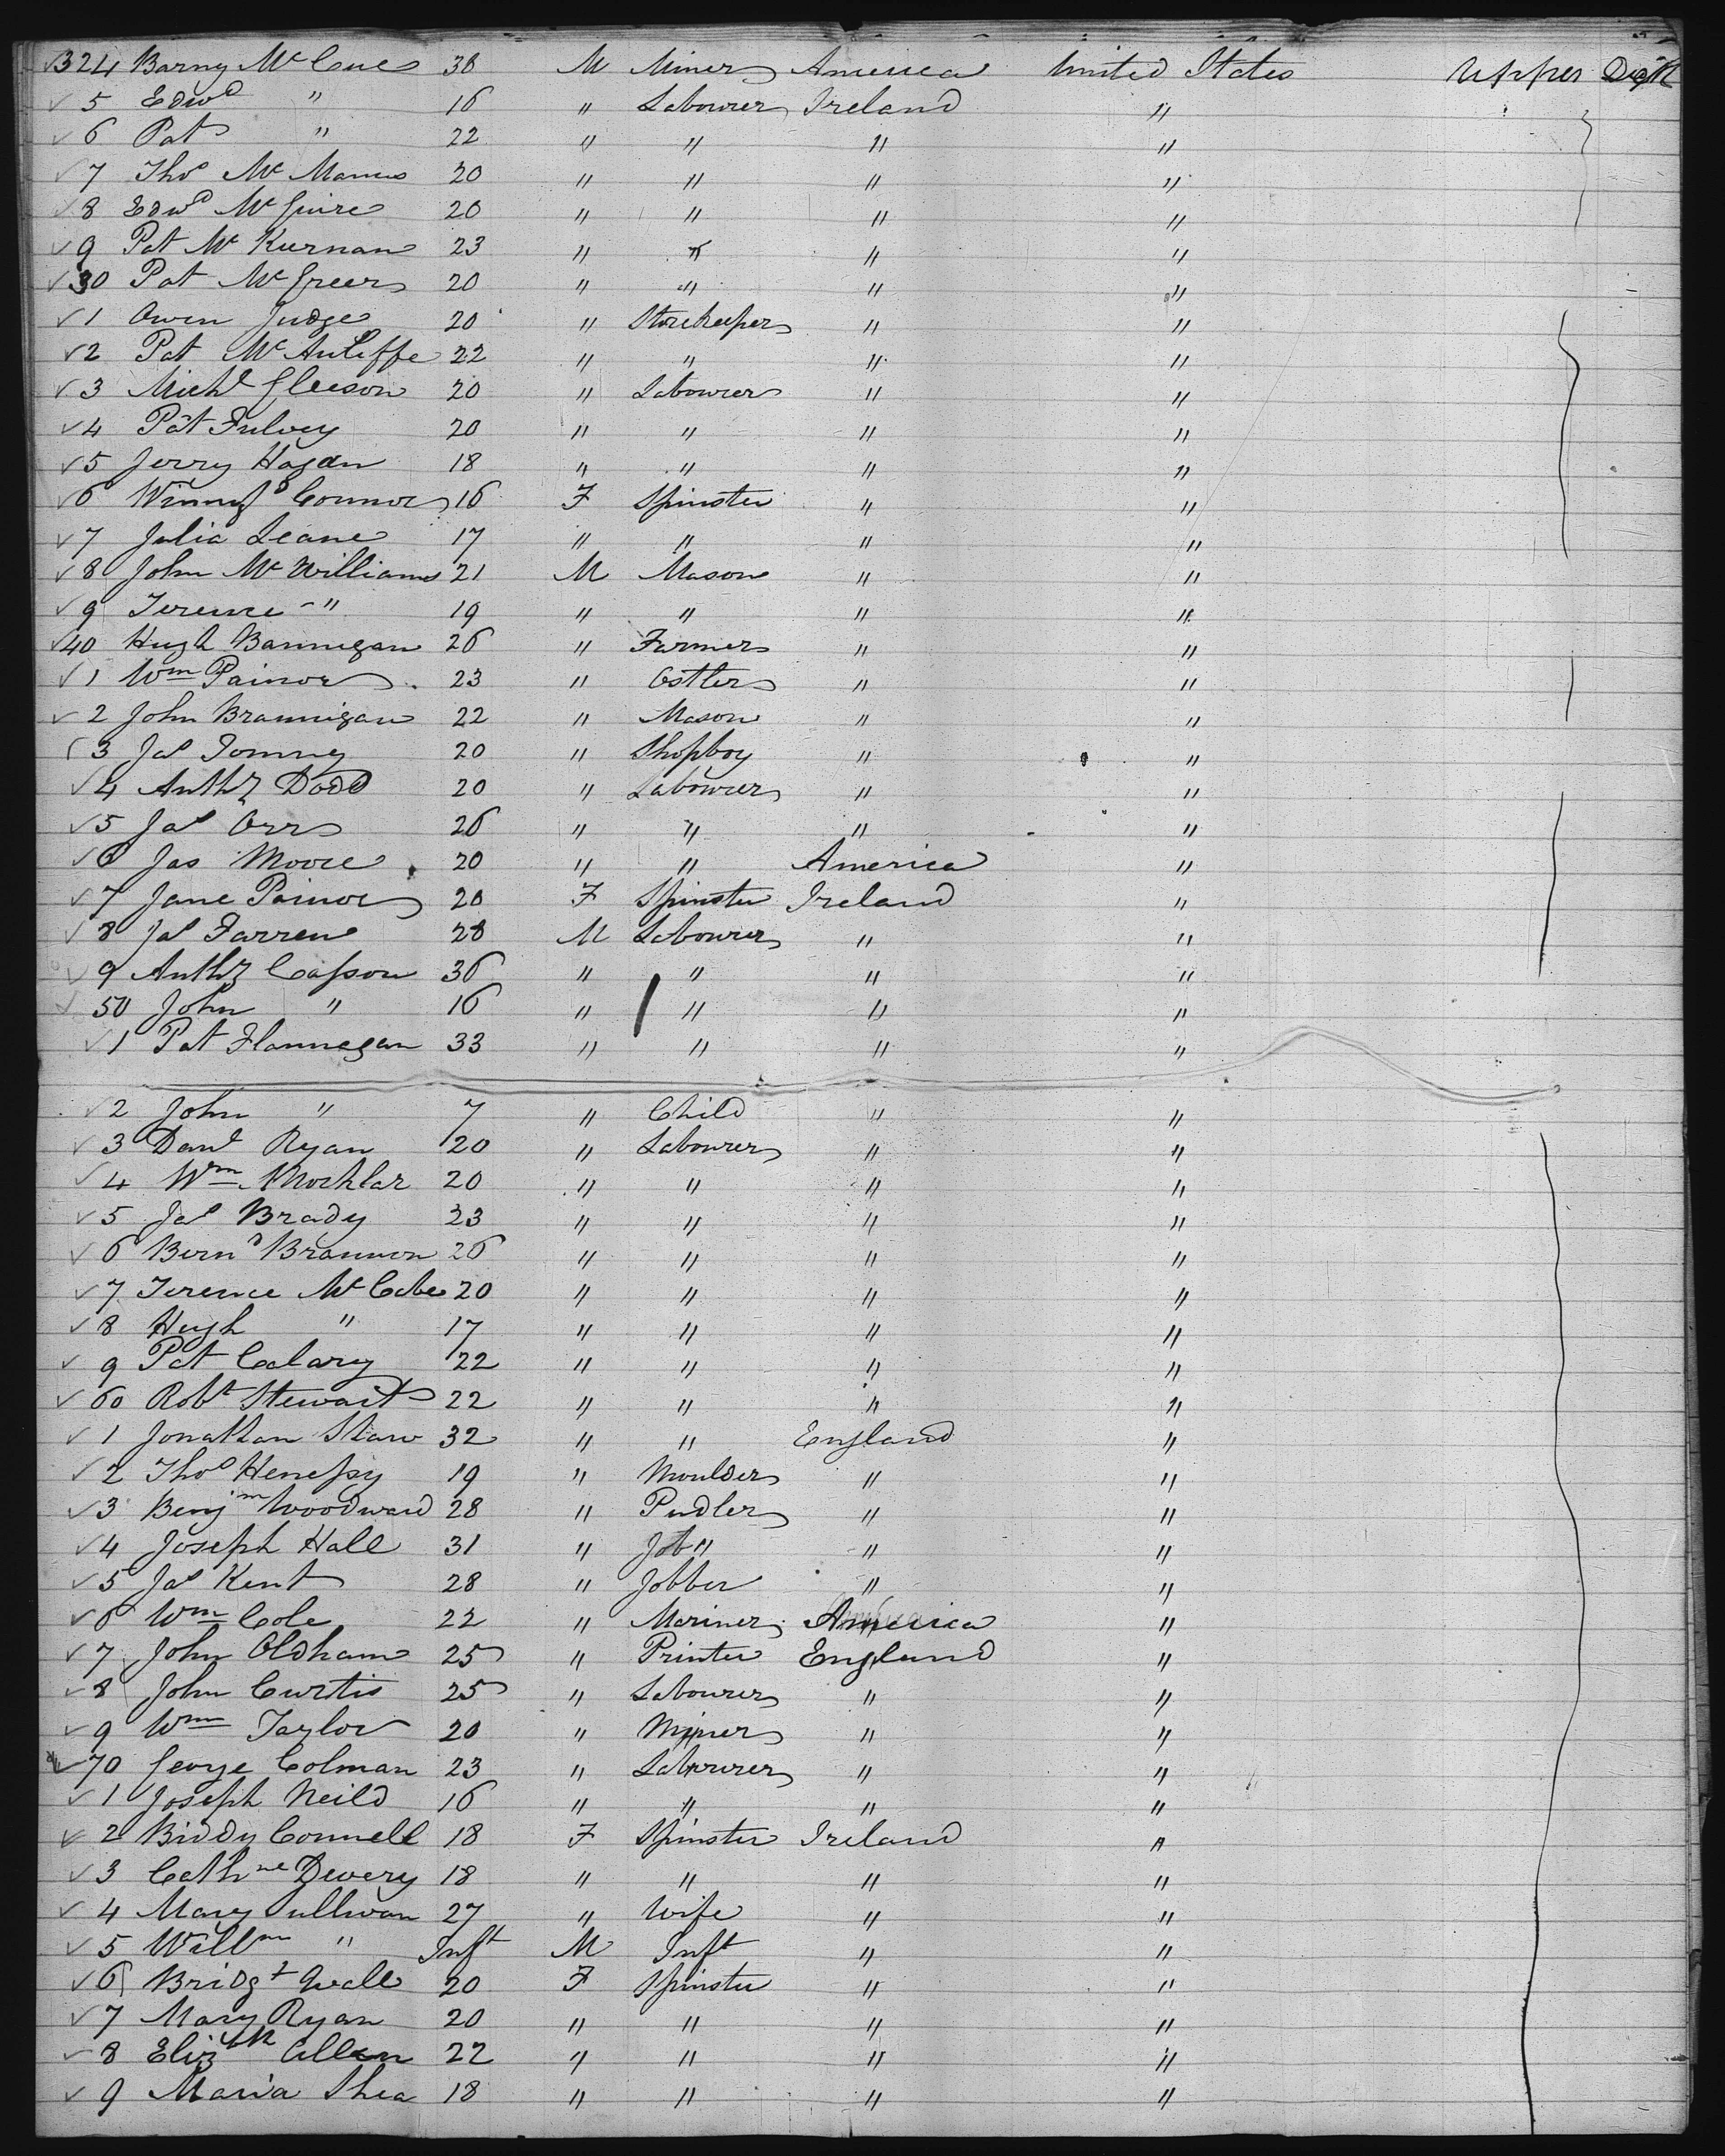 324 Barny Mc Cue 38 M Miner America United States Upper Deck
5 Edwd " 16 " Labourer Ireland "
6 Pat " 22 " " " "
7 Thos Mc Manus 20 " " " "
8 Edwd Mc Guire 20 " " " "
9 Pat Mc Kiernan 23 " " " "
30 Pat Mc Greer 20 " " " "
1 Owen Judge 20 " Storekeeper " "
2 Pat Mc Auliffe 22 " " " "
3 Michl Gleeson 20 " Labourer " "
4 Pat Fulvey 20 " " " "
5 Jerry Hagan 18 " " " "
6 Connor 16 F Spinster " "
7 Julia Leane 17 " " " "
8 John Mc Williams 21 M Mason " "
9 Terence " 19 " " " "
40 Hugh Bannigan 26 " Farmer " "
1 Wm Painor 23 " Ostler " "
2 John Brannigan 22 " Mason " "
3 Jas 20 " Shopboy " "
4 Anthy Dodd 20 " Labourer " "
5 Jas Orr 26 " " " "
6 Jas Moore 20 " " America "
7 Jane Painor 20 F Spinster Ireland "
8 Jas Farren 28 M Labourer " "
9 Anthy Casson 36 " " " "
50 John " 16 " " " "
1 Pat Flannegan 33 " " " "
2 John " 7 " Child " "
3 Danl Ryan 20 " Labourer " "
4 Wm Mochlar 20 " " " "
5 Jas Brady 23 " " " "
6 Bernd Brannon 26 " " " "
7 Terence Mc Cabe 20 " " " "
8 Hugh " 17 " " " "
9 Pat Calary 22 " " " "
60 Robt Stewart 22 " " " "
1 Jonathan Shaw 32 " " England "
2 Thos Henessy 19 " Moulder " "
3 Benjm Woodward 28 " Pudler " "
4 Joseph Hall 31 " Job " " "
5 Jas Kent 28 " Jobber " "
6 Wm Cole 22 " Mariner America "
7 John Oldham 25 " Printer England "
8 John Curtis 25 " Labourer " "
9 Wm Taylor 20 " Miner " "
70 George Colman 23 " Labourer " "
1 Joseph Neild 16 " " " "
2 Biddy Connell 18 F Spinster Ireland "
3 Cathne Devery 18 " " " "
4 Mary Sullivan 27 " Wife " "
5 Willm " Inft M Inft " "
6 Bridgt Wall 20 F Spinster " "
7 Mary Ryan 20 " " " "
8 Elizth Allen 22 " " " "
9 Maria Shea 18 " " " "